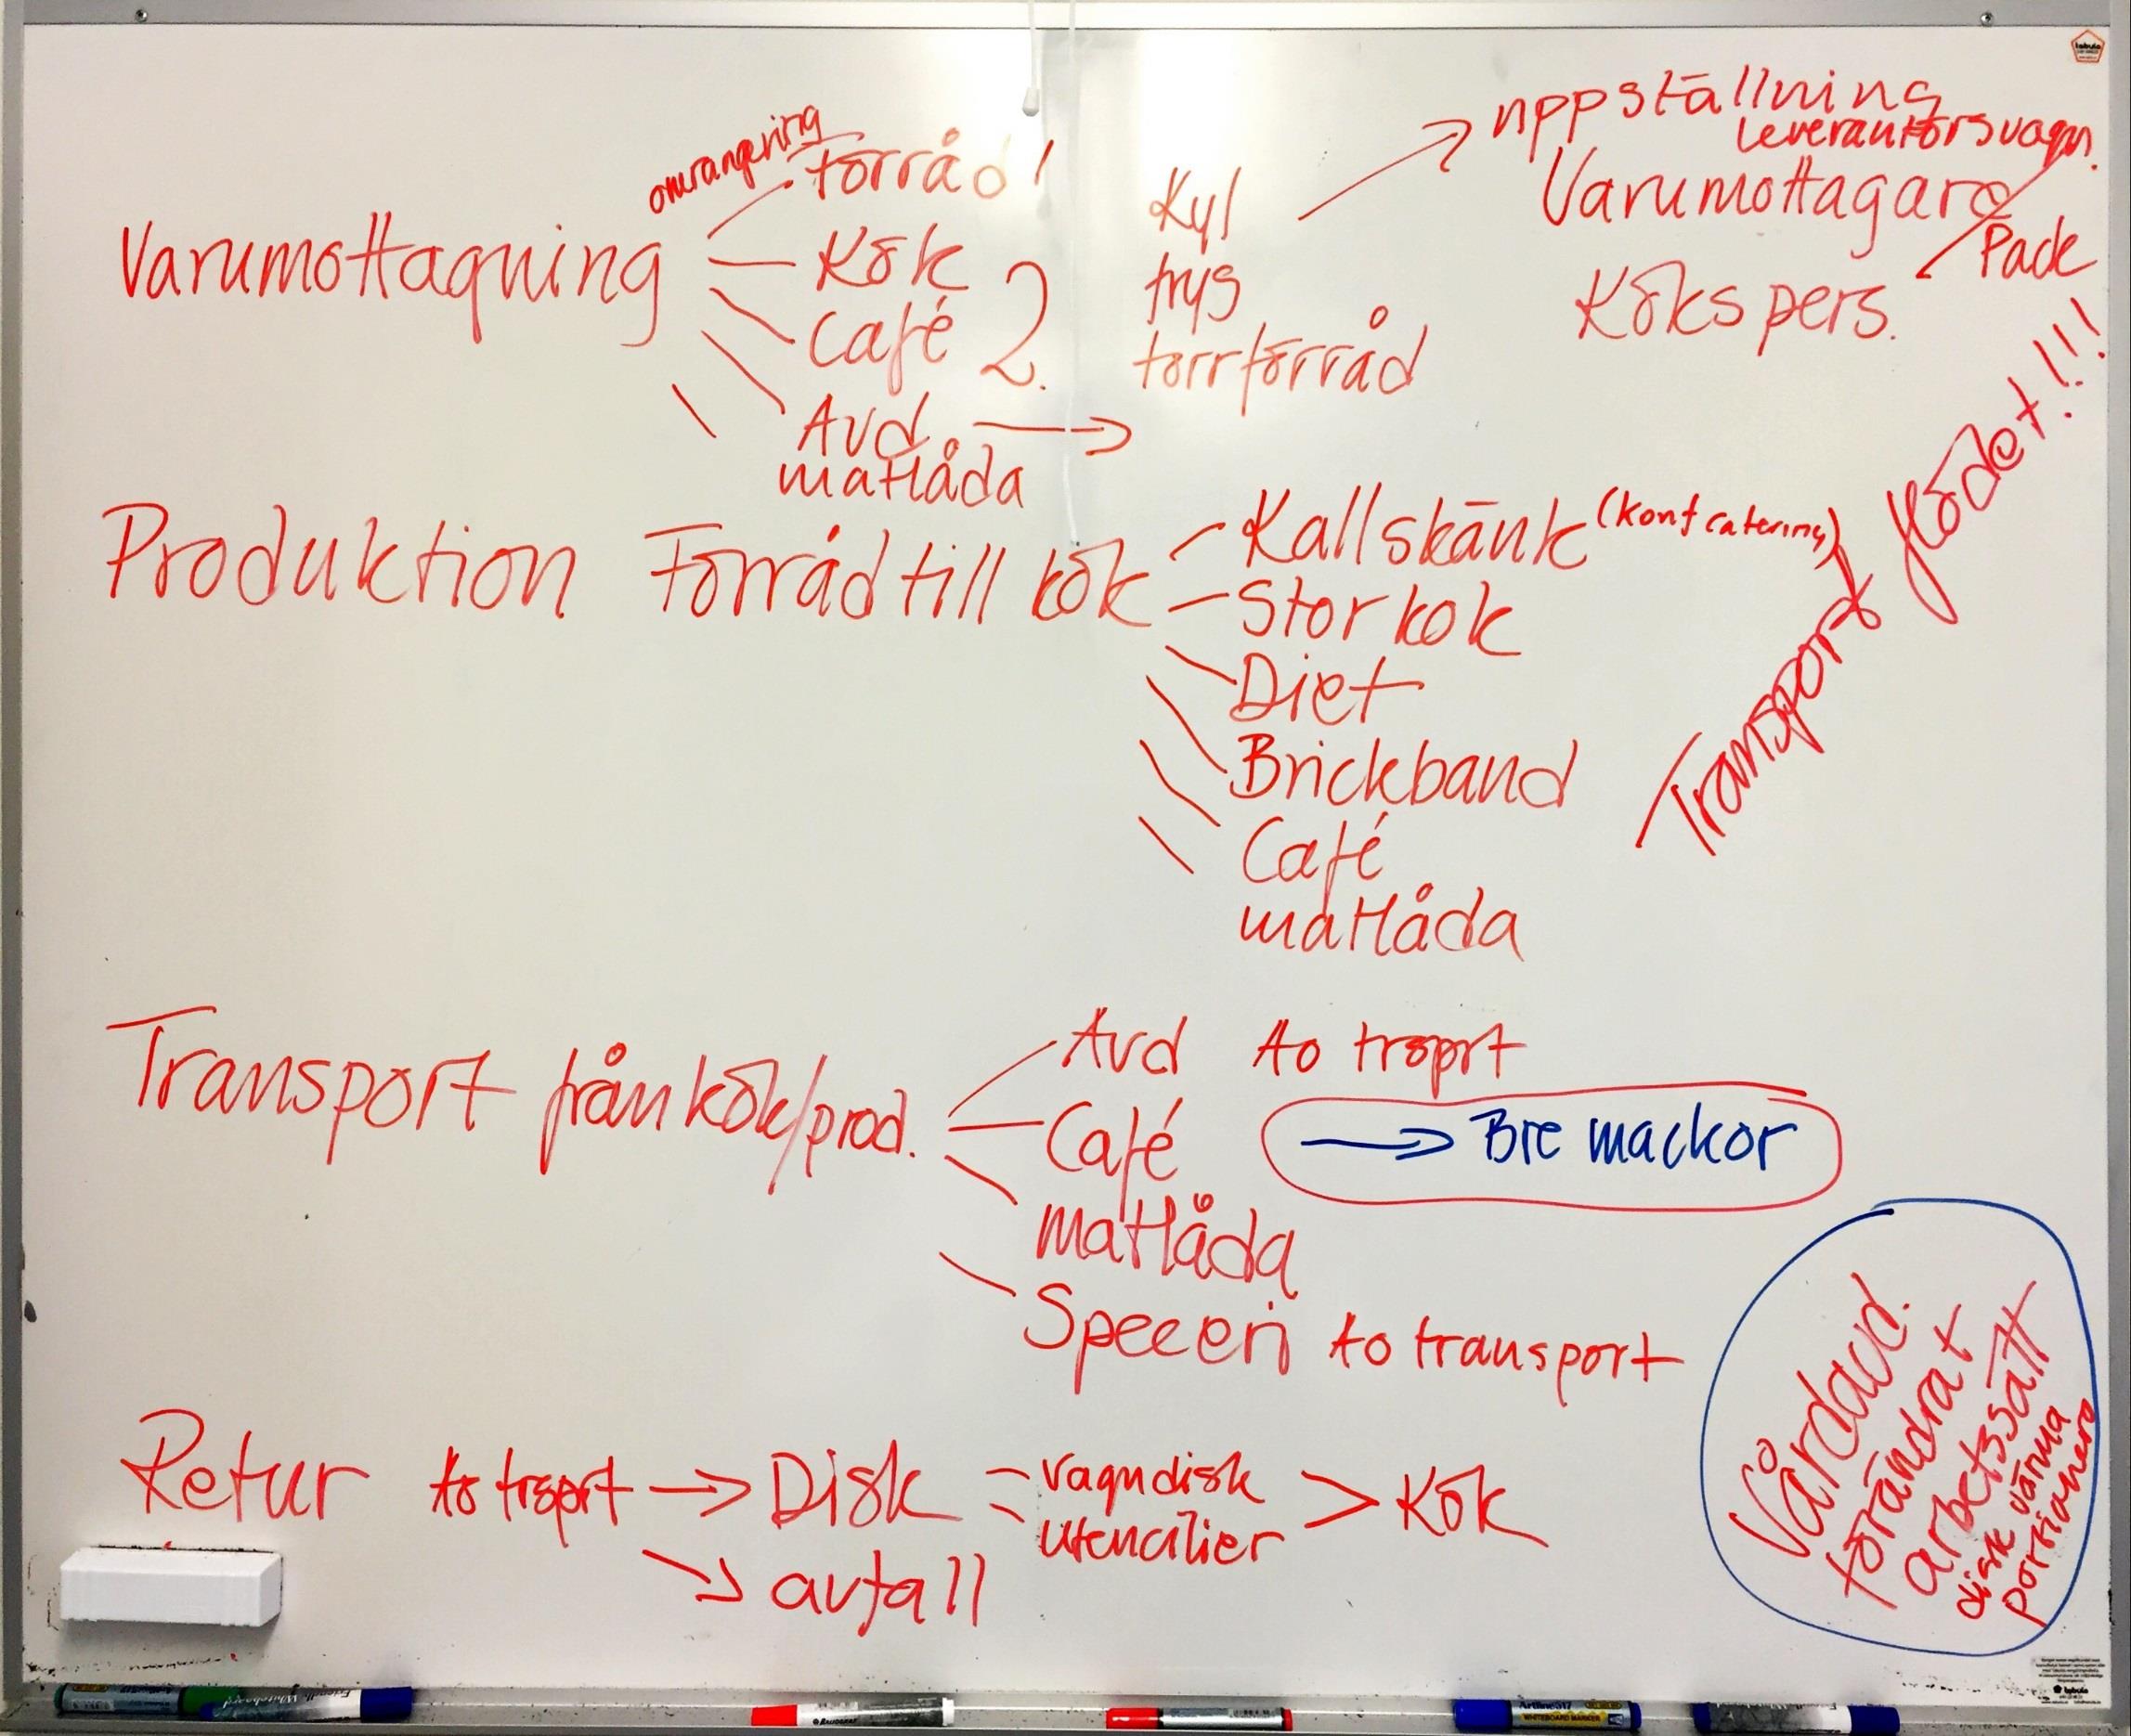 omrangering
Förråd 1
Varumottagning
Kök
Café 2.
Avd.
matlåda
Kyl
frys
torrförråd
uppställning
leverantörsvagn.
Varumottagare
Pack
Kökspers.
Transportflödet!!!
Produktion Förråd till kök
Kallskänk (konf catering)
Storkok
Diet
Brickband
Café
matlåda
Transport från kök/prod.
Avd to trsprt
Café → Bre mackor
matlåda
Speceri to transport
Retur to trsprt → Disk = vagndisk > Kök
utencilier
avfall
Vårdavd.
förändrat
arbetssätt
disk värma
portionera
Artline 517
WHITEBOARD MARKER